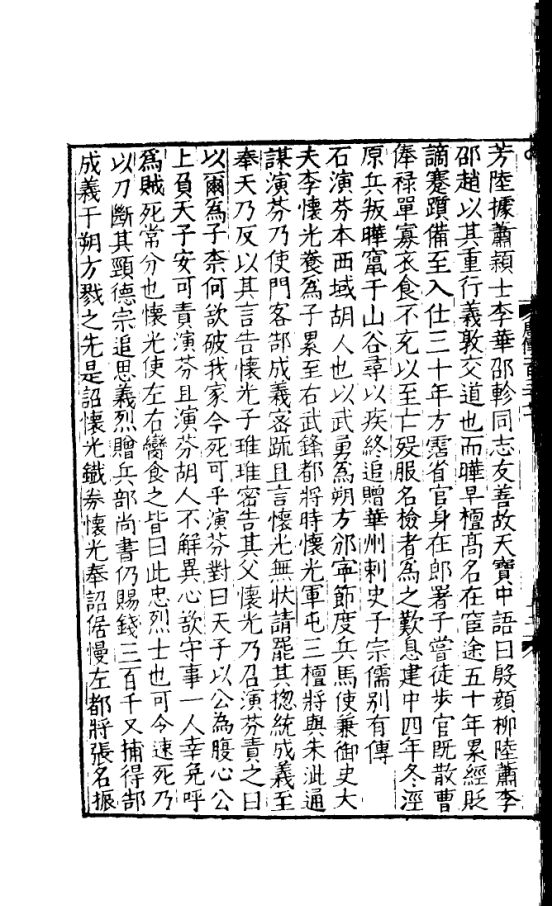 芳陸據蕭穎士李華邵軫同志友善故天寶中語曰殷顏柳陸蕭李
邵趙以其重行義敦交道也而曄早擅高名在宦途五十年累經貶
謫蹇躓備至入仕三十年方霑省官身在郎署子嘗徒歩官旣散曹
俸禄單寡衣食不充以至亡歿服名檢者爲之歎息建中四年冬涇
原兵叛曄竄于山谷尋以疾終追贈華州刺史子宗儒別有傳
石演芬本西域胡人也以武勇爲朔方邠寧節度兵馬使兼御史大
夫李懷光養爲子累至右武鋒都將時懷光軍屯三橋將與朱泚通
謀演芬乃使門客郜成義密疏且言懷光無狀請罷其揔統成義至
奉天乃反以其言告懷光子琟琟密告其父懷光乃召演芬責之曰
以爾爲子柰何欲破我家今死可乎演芬對曰天子以公為腹心公
上負天子安可責演芬且演芬胡人不解異心欲守事一人幸免呼
爲賊死常分也懷光使左右臠食之皆曰此忠烈士也可令速死乃
以刀斷其頸德宗追思義烈贈兵部尚書仍賜錢三百千又捕得郜
成義于朔方戮之先是詔懷光鐵券懷光奉詔倨慢左都將張名振